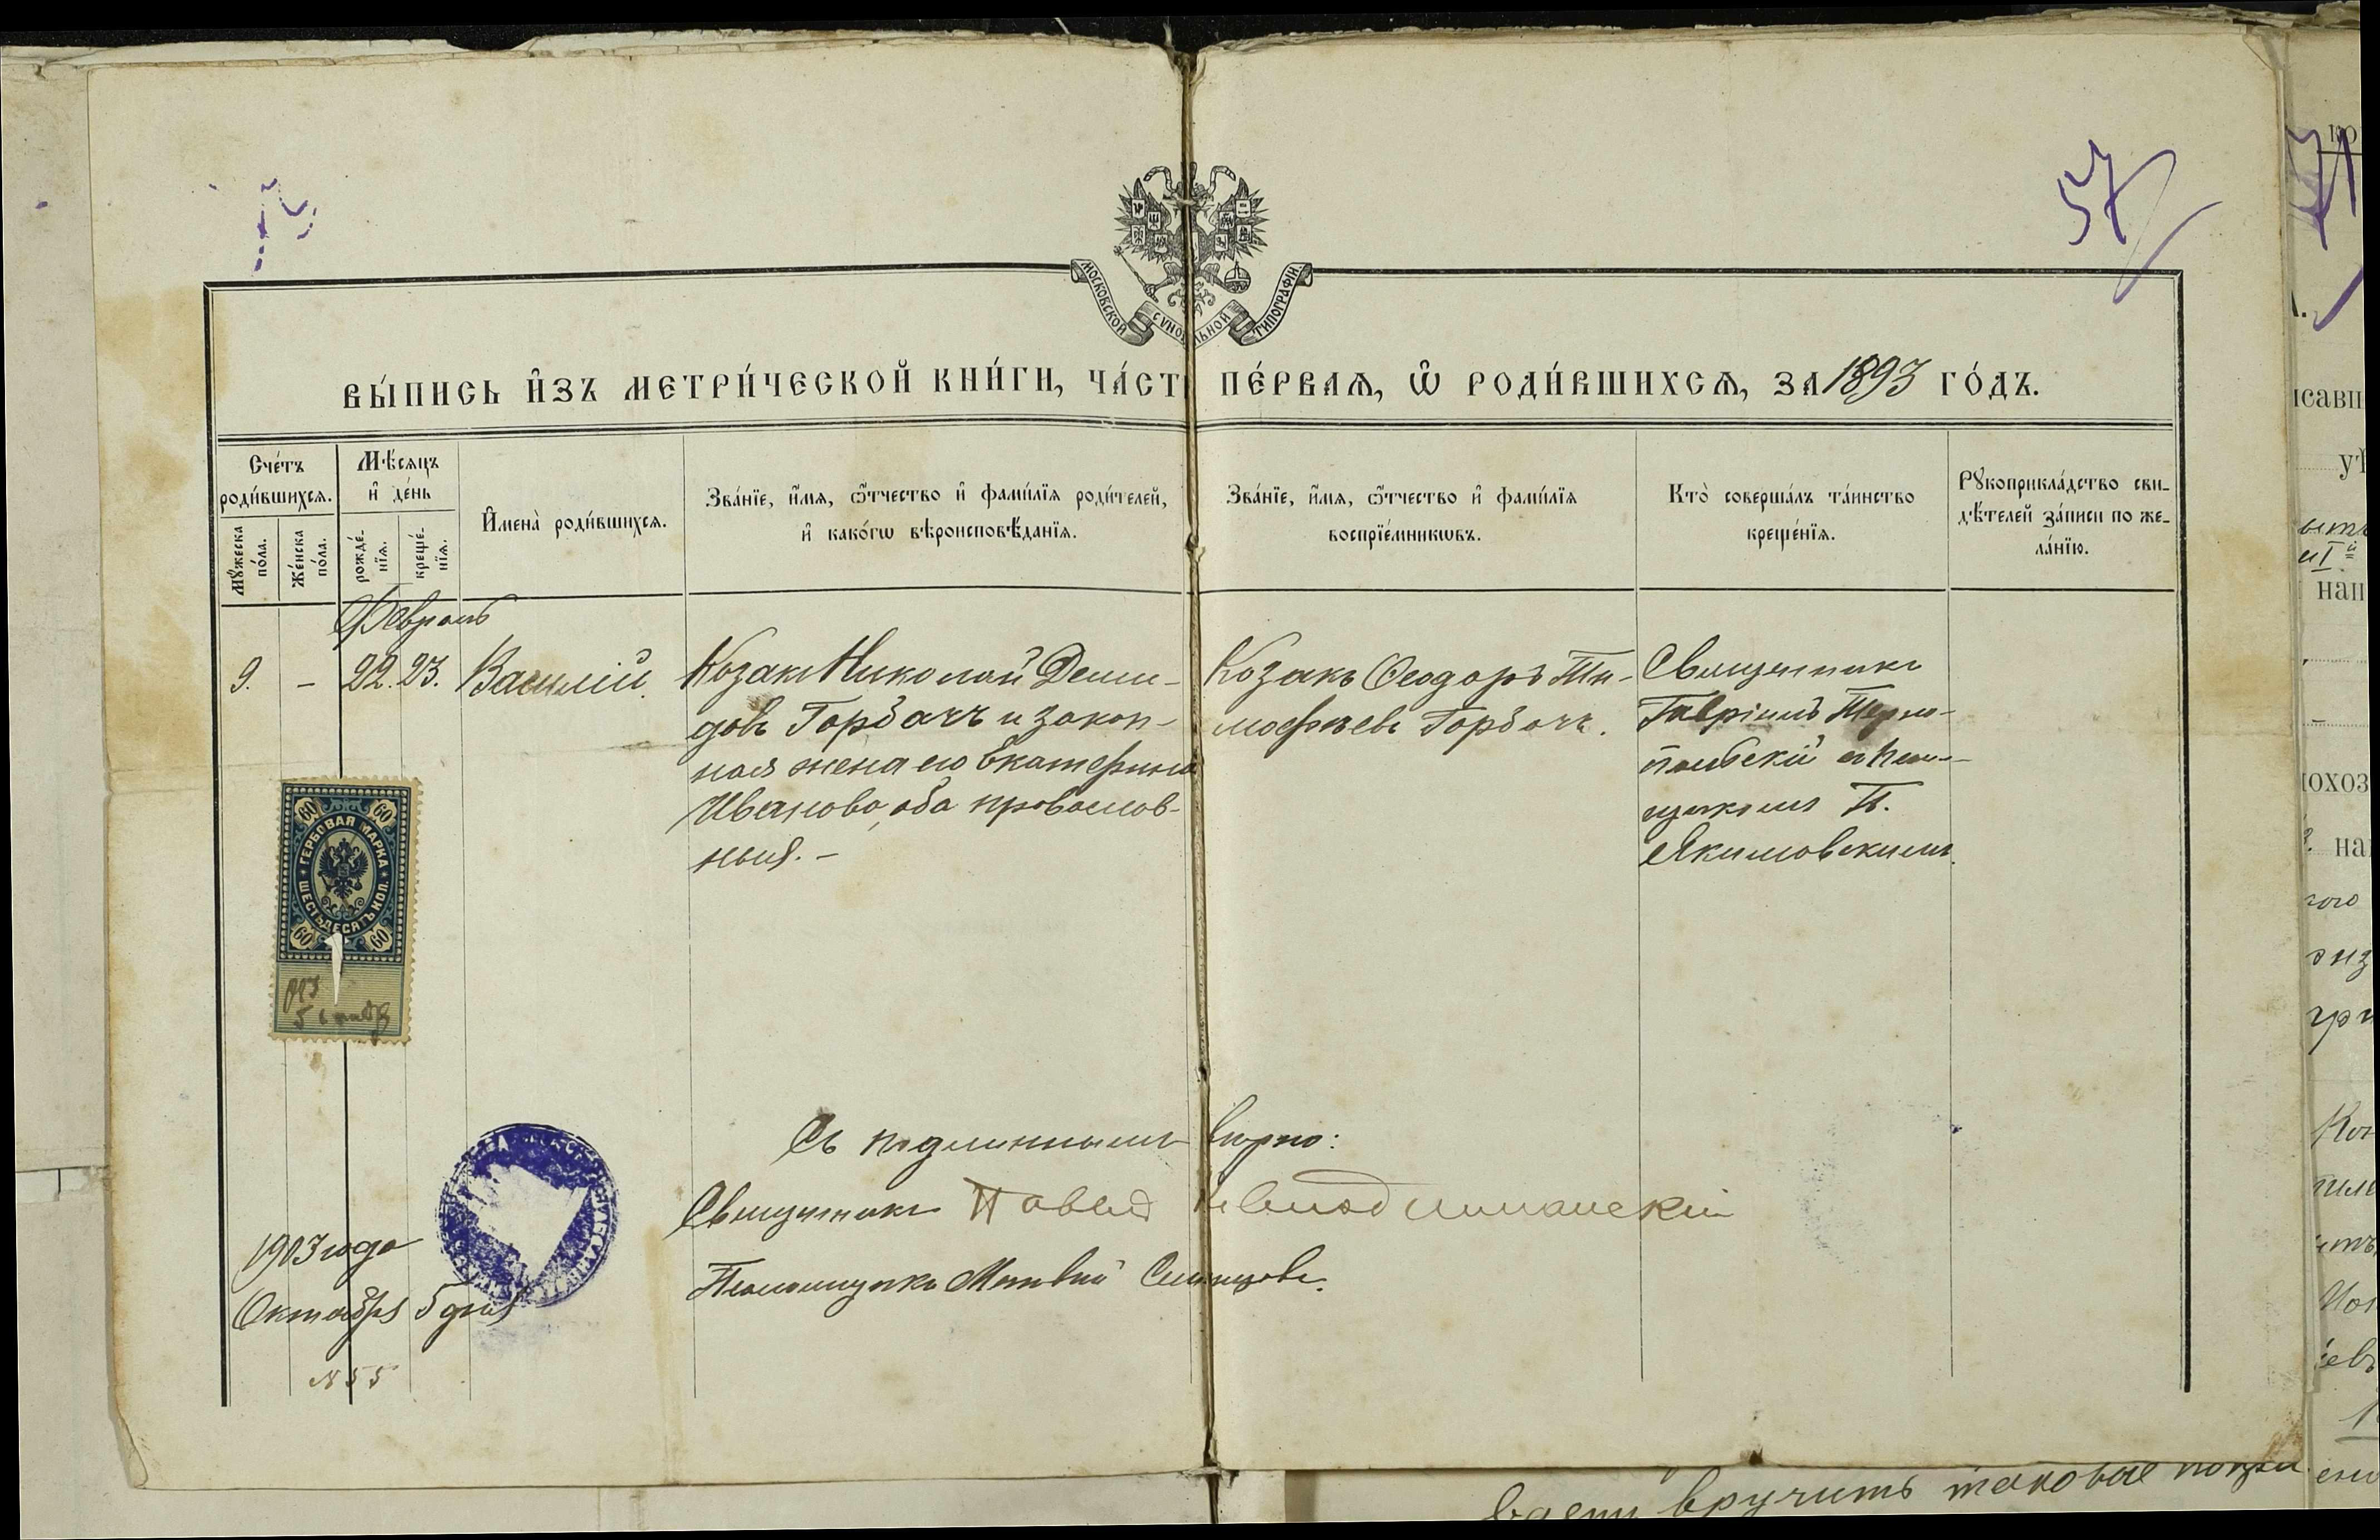 57
МОСКОВСКОЙ СѴНОДАЛЬНОЙ ТИПОГРАФІИ
ВЫ́ПИСЬ И҆́ЗЪ МЕТРИ́ЧЕСКОЙ КНИ́ГИ, ЧА́СТЬ ПЕ́РВАѦ, Ѽ РОДИ́ВШИХСѦ, ЗА 1893 ГО́ДЪ.
Сче́тъ роди́вшихсѧ.
Мꙋ́жеска по́ла.
Же́нска по́ла.
Мѣ́сѧцъ и҆ де́нь
рожде́нїѧ.
креще́нїѧ.
И҆мена̀ роди́вшихсѧ.
Зва́нїе, и҆́мѧ, ѻ҆́тчество и҆ фами́лїѧ роди́телей,
и҆ како́гѡ вѣроисповѣ́данїѧ.
Зва́нїе, и҆́мѧ, ѻ҆́тчество и҆ фами́лїѧ
воспрїе́мникѡвъ.
Кто̀ соверша́лъ та́инство
креще́нїѧ.
Рꙋкоприкла́дство сви-
дѣ́телей за́писи по же-
ла́нїю.
Февраль
9. – 22. 23. Василій.
Козакъ Николай Деми-
довъ Горбачъ и закон-
ная жена его Екатерина
Иванова, оба православ-
ныя. –
Козакъ Ѳеодоръ Ти-
моѳеевъ Горбачъ.
Священникъ
Гавріилъ Терно-
польскій съ псалом-
щикомъ П.
Якимовскимъ.
60 60
ГЕРБОВАЯ МАРКА
ШЕСТЬДЕСЯТЪ КОП.
60 60
903
5 октября
Съ подлиннымъ вѣрно:
Священникъ Павелъ
Псаломщикъ Матвій
1903 года
Октября 5 дня
№ 55
вручить таковые